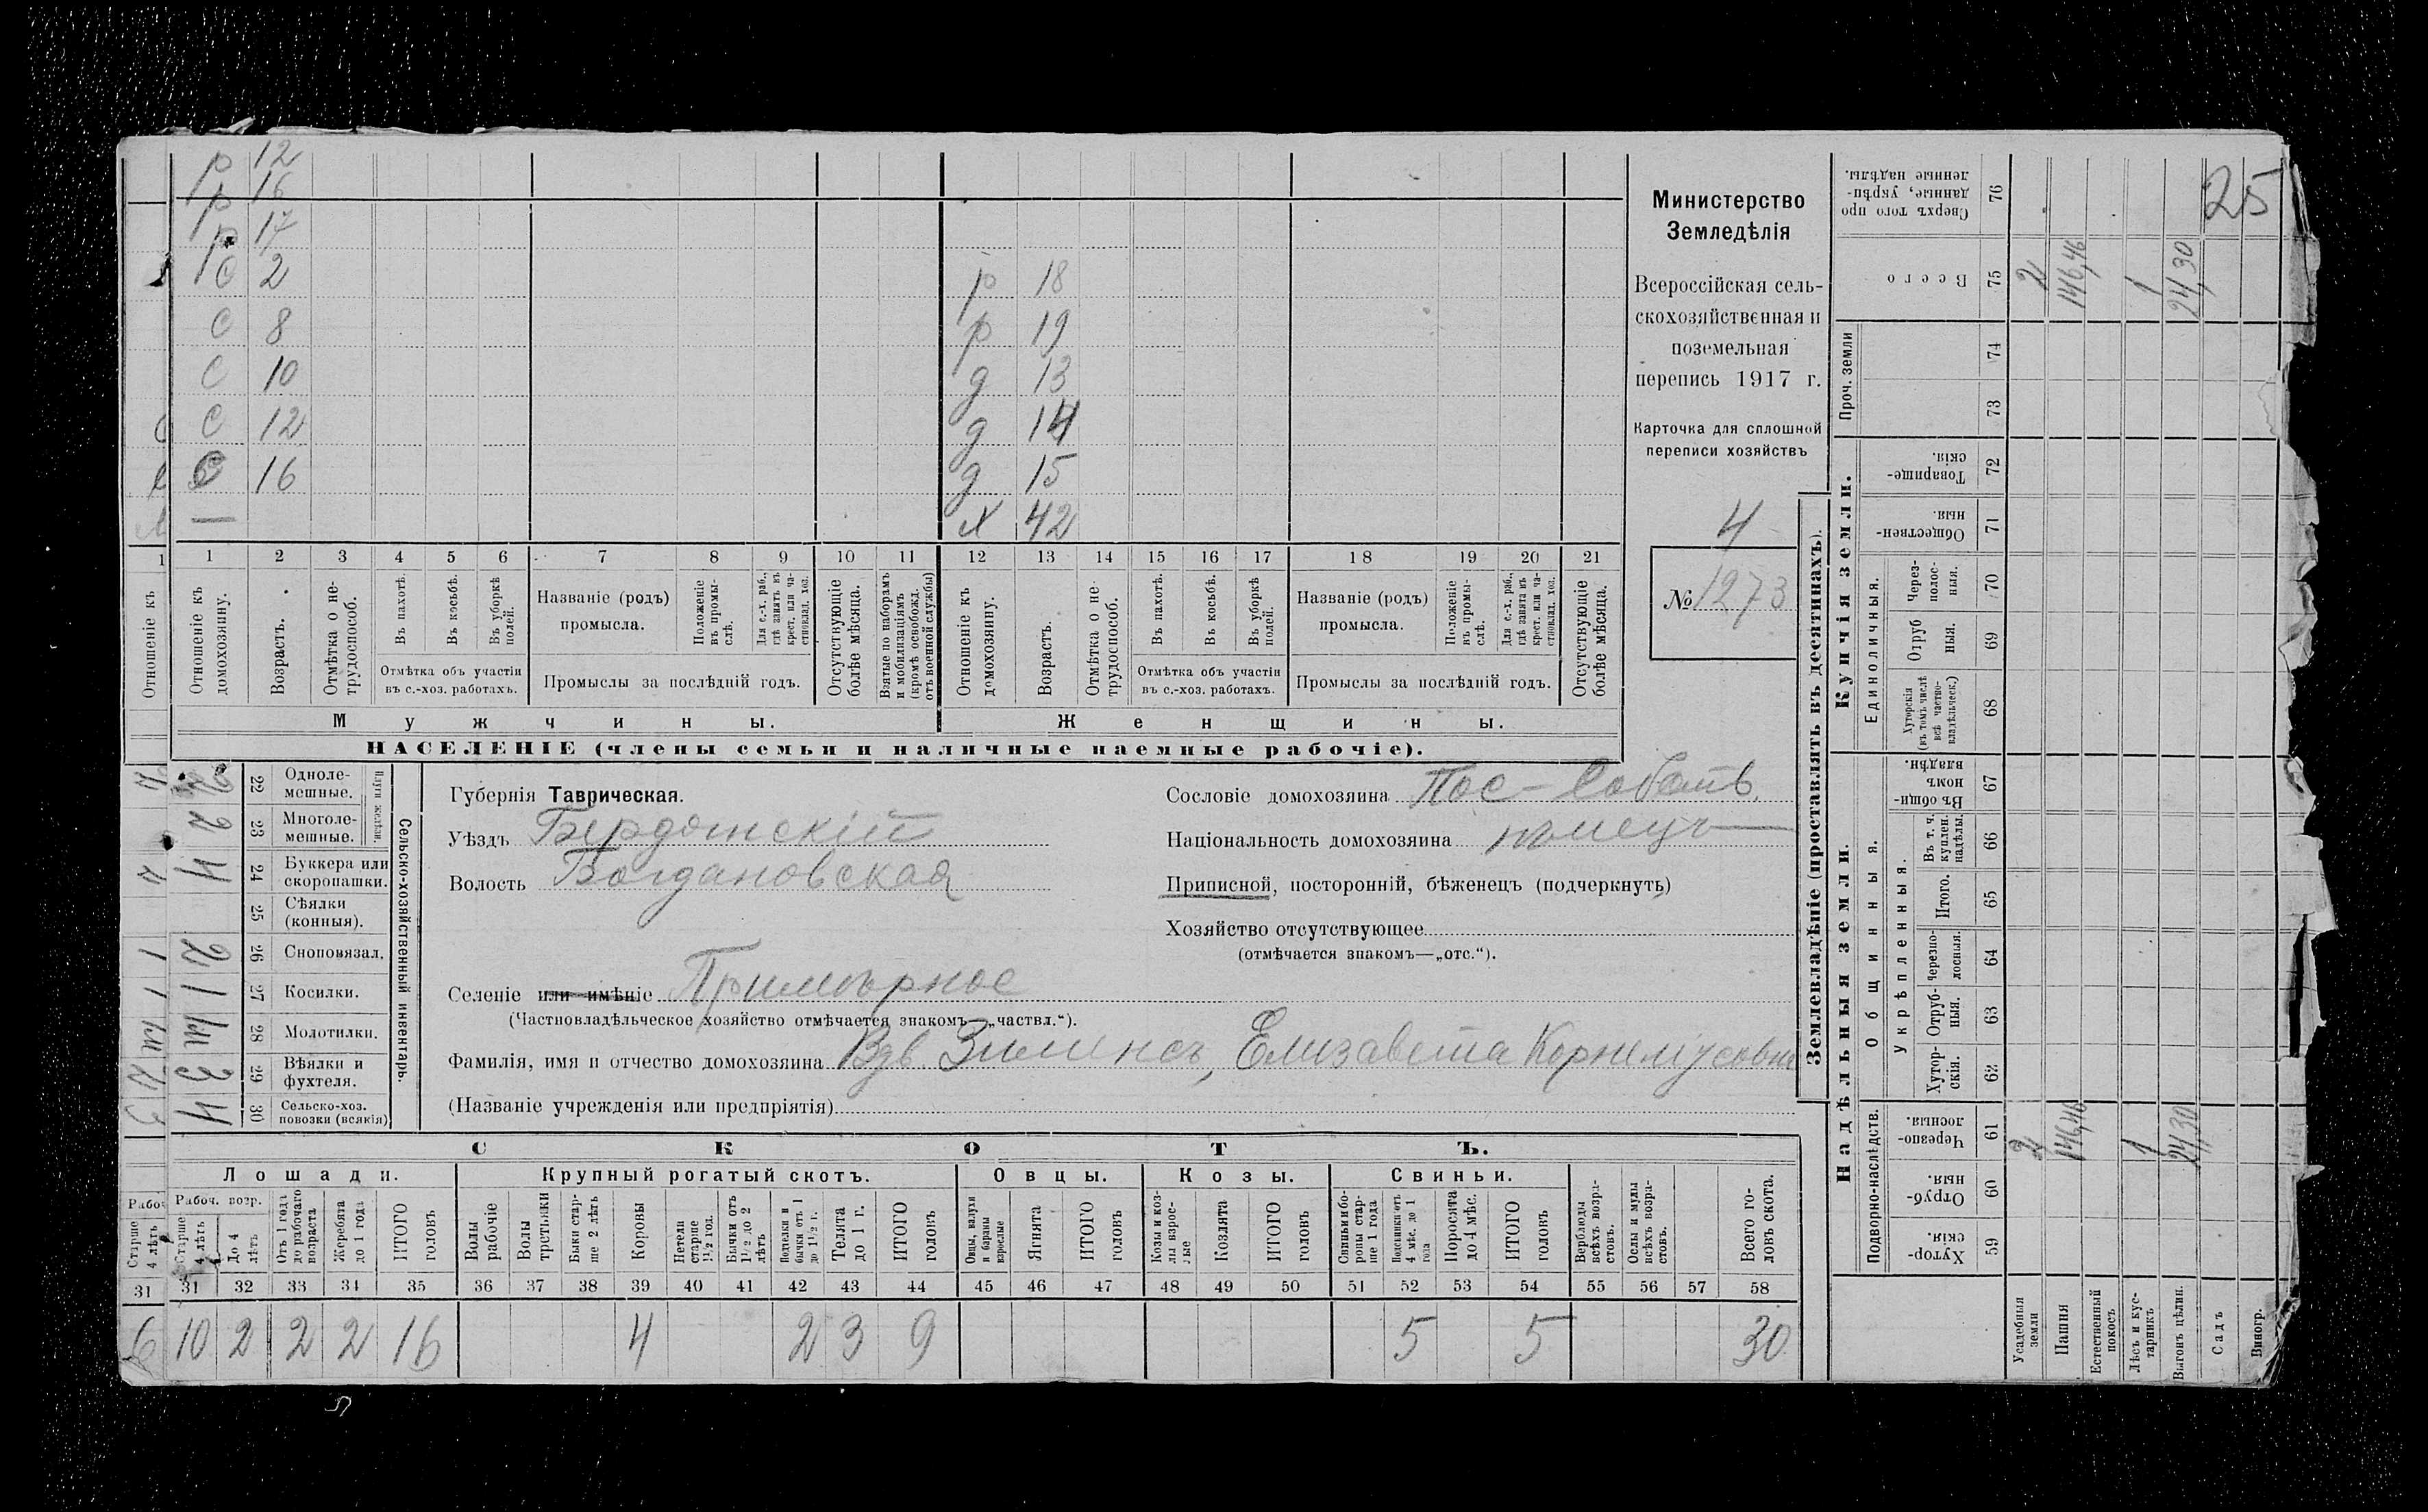 р 12
р 16
р 17
с 2 р 18
с 8 р 19
с 10 д 13
с 12 д 14
с 16 д 15
— х 42
1 2 3 4 5 6 7 8 9 10 11 12 13 14 15 16 17 18 19 20 21
Отношеніе къ домохозяину.
Возрастъ.
Отмѣтка о нетрудоспособ.
Въ пахотѣ.
Въ косьбѣ.
Въ уборкѣ полей.
Отмѣтка объ участіи въ с.-хоз. работахъ.
Названіе (родъ) промысла.
Положеніе въ промыслѣ.
Для с.-х. раб., гдѣ занятъ въ крест. или частновлад. хоз.
Промыслы за послѣдній годъ.
Отсутствующіе болѣе мѣсяца.
Взятые по наборамъ и мобилизаціямъ (кромѣ освобожд. отъ военной службы)
Отношеніе къ домохозяину.
Возрастъ.
Отмѣтка о нетрудоспособ.
Въ пахотѣ.
Въ косьбѣ.
Въ уборкѣ полей.
Отмѣтка объ участіи въ с.-хоз. работахъ.
Названіе (родъ) промысла.
Положеніе въ промыслѣ.
Для с.-х. раб., гдѣ занята въ крест. или частновлад. хоз.
Промыслы за послѣдній годъ.
Отсутствующіе болѣе мѣсяца.
Мужчины. Женщины.
НАСЕЛЕНІЕ (члены семьи и наличные наемные рабочіе).
Министерство
Земледѣлія
Всероссійская сель-
скохозяйственная и
поземельная
перепись 1917 г.
Карточка для сплошной
переписи хозяйствъ
4
№ 1273
Сельско-хозяйственный инвентарь.
22 Одноле-
мешные.
2 23 Многоле-
мешные.
4 24 Буккера или
скоропашки.
25 Сѣялки
(конныя).
2 26 Сноповязал.
1 27 Косилки.
28 Молотилки.
3 29 Вѣялки и
фухтеля.
4 30 Сельско-хоз.
повозки (всякія)
Губернія Таврическая.
Уѣздъ Бердянскій
Волость Богдановская
Селеніе или имѣніе Примѣрное
(Частновладѣльческое хозяйство отмѣчается знакомъ—„частвл.“).
Фамилія, имя и отчество домохозяина Вдв. Зименсъ, Елизавета Корнеліусовна
(Названіе учрежденія или предпріятія)
Сословіе домохозяина Пос-Собств.
Національность домохозяина нѣмецъ
Приписной, посторонній, бѣженецъ (подчеркнуть)
Хозяйство отсутствующее
(отмѣчается знакомъ—„отс.“).
СКОТЪ.
Лошади. Крупный рогатый скотъ. Овцы. Козы. Свиньи.
Рабоч. возр.
Старше 4 лѣтъ
До 4 лѣтъ
Отъ 1 года до рабочаго возраста
Жеребята до 1 года
ИТОГО головъ
Волы рабочіе
Волы третьяки
Быки старше 2 лѣтъ
Коровы
Нетели старше 1½ год.
Бычки отъ 1½ до 2 лѣтъ
Подтелки и бычки отъ 1 до 1½ г.
Телята до 1 г.
ИТОГО головъ
Овцы, валухи и бараны взрослые
Ягнята
ИТОГО головъ
Козы и козлы взрослые
Козлята
ИТОГО головъ
Свиньи и боровы старше 1 года
Подсвинки отъ 4 мѣс. до 1 года
Поросята до 4 мѣс.
ИТОГО головъ
Верблюды всѣхъ возрастовъ.
Ослы и мулы всѣхъ возрастовъ.
Всего головъ скота.
31 31 32 33 34 35 36 37 38 39 40 41 42 43 44 45 46 47 48 49 50 51 52 53 54 55 56 57 58
6 10 2 2 2 16 4 2 3 9 5 5 30
Землевладѣніе (проставлять въ десятинахъ).
Надѣльныя земли. Купчія земли. Проч. земли
Подворно-наслѣдств. Общинныя. Укрѣпленныя. Единоличныя.
Хуторскія. 59
Отрубныя. 60
Черезполосныя. 61
Хуторскія. 62
Отрубныя. 63
Черезполосныя. 64
Итого. 65
Въ т. ч. куплен. надѣлы. 66
Въ общинномъ владѣн. 67
Хуторскія (въ томъ числѣ всѣ частновладѣльческ.) 68
Отрубныя. 69
Черезполосныя. 70
Общественныя. 71
Товарищескія. 72
73
74
Всего 75
Сверхъ того проданные, укрѣпленные надѣлы. 76
Усадебныя земли 2 2
Пашня 146,46 146,46
Естественный покосъ
Лѣсъ и кустарникъ 1 1
Выгонъ цѣлин. 24,30 24,30
Садъ
Виногр.
25